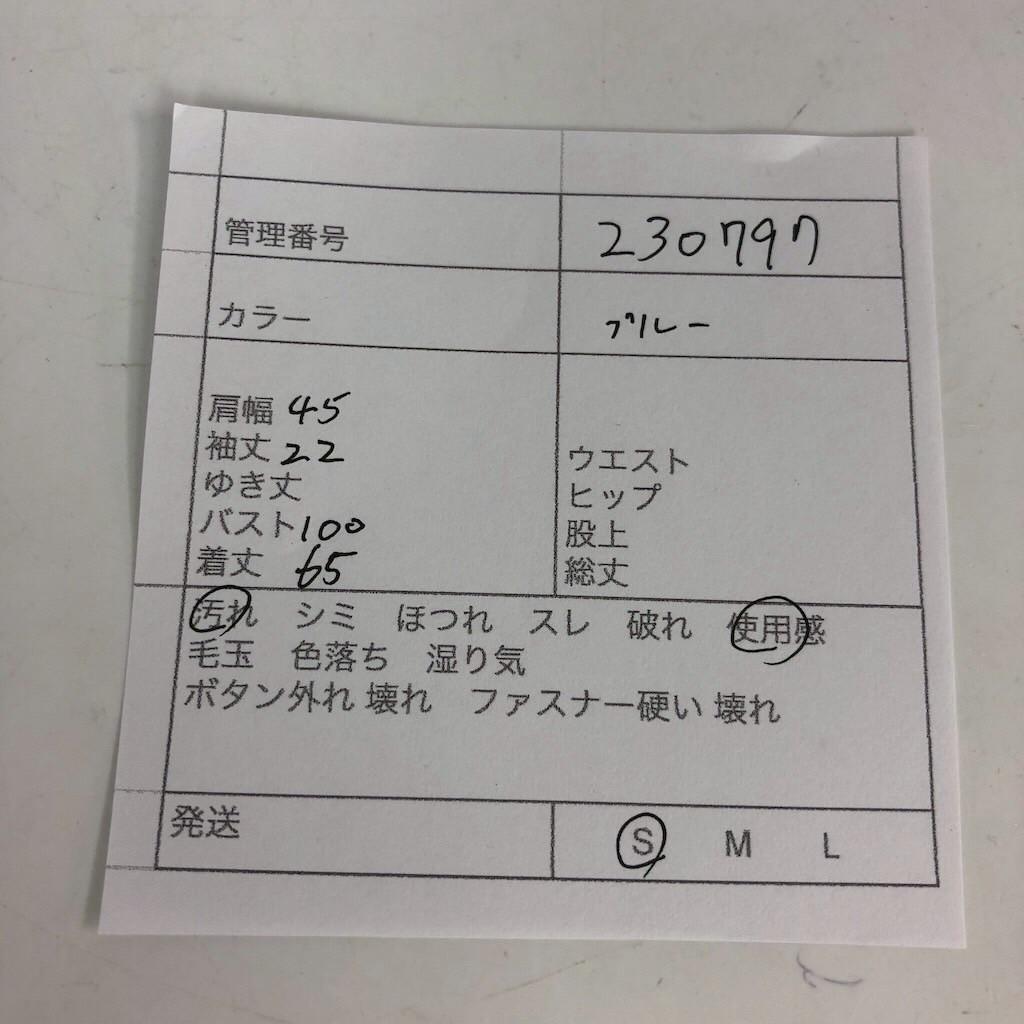 管理番号 230797
カラー ブルー
肩幅 45
袖丈 22
ゆき丈
バスト 100
着丈 65
ウエスト
ヒップ
股上
総丈
汚れ シミ ほつれ スレ 破れ 使用感
毛玉 色落ち 湿り気
ボタン外れ 壊れ ファスナー硬い 壊れ
発送 S M L